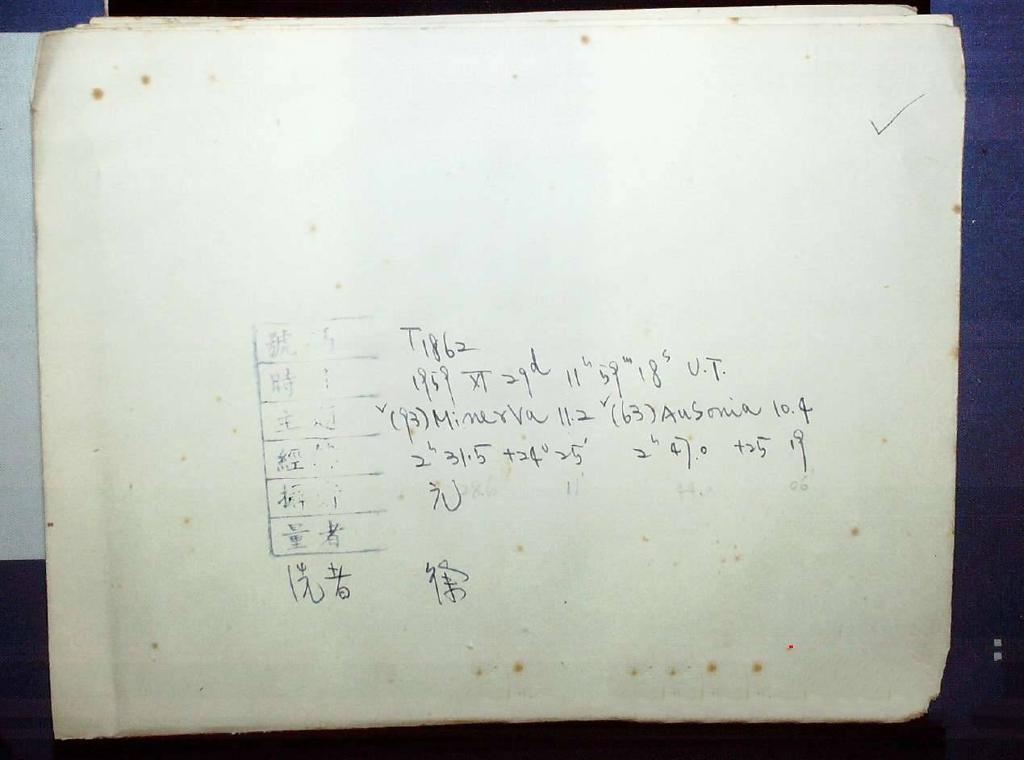 號 T1862
時 1959 XI 29d 11h 59m 18s U.T.
主 √(93)Minerva 11.2 √(63)Ausonia 10.4
經 2h 31.5 +24° 25' 2h 47.0 +25 19
28.6 11 44.0 06
攝 元
量者
洗者 徐